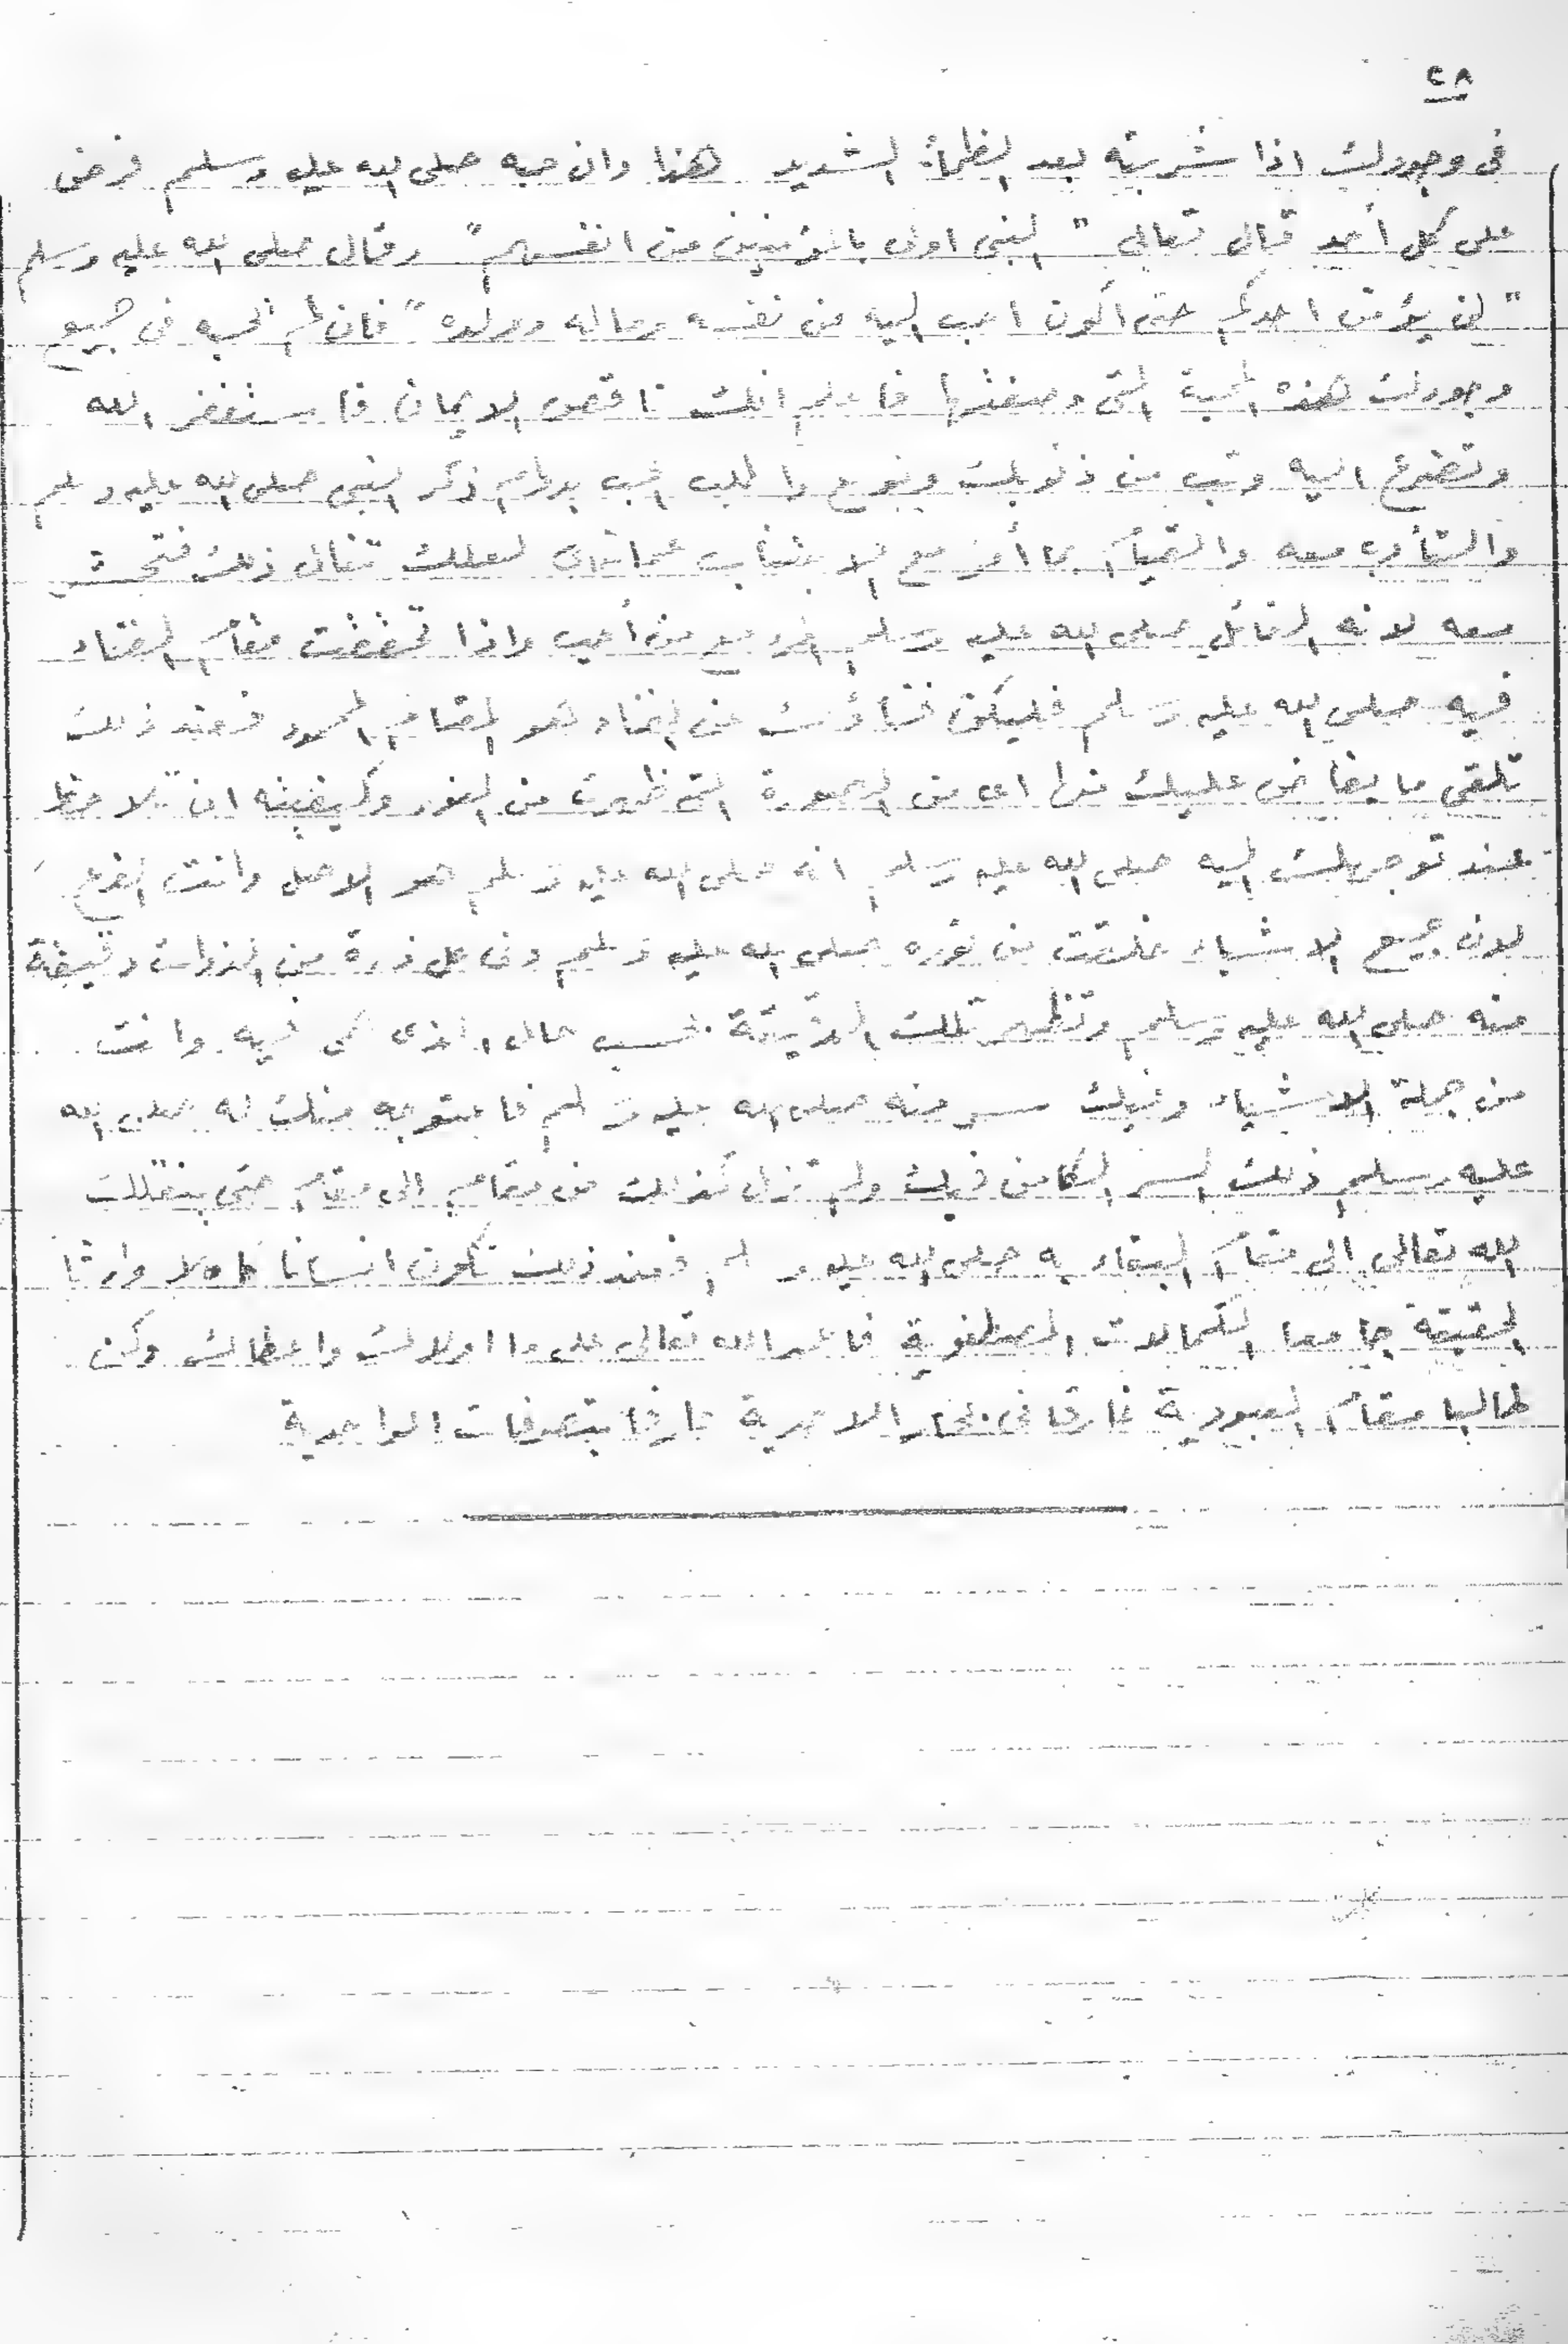 ٢٨
فى وجودك اذا شربته بعد الظمأ الشديد هذا وان حبه صلى الله عليه وسلم فرض
على كل أحد قال تعالى " النبى اولى بالمؤمنين من انفسهم " وقال صلى الله عليه وسلم
" لن يؤمن احدكم حتى اكون احب اليه من نفسه وماله وولده " فان لم تحبه فى جميع
وجودك هذه المحبة التى وصفتها فاعلم انك ناقص الايمان فاستغفر الله
وتضرع اليه وتب من ذنوبك واطلب الحب بدوام ذكر النبى صلى الله عليه وسلم
والتأدب معه والقيام بما أمر مع الاجتناب عما نهى لعلك تنال ذلك فتحشر
معه لانه القائل صلى الله عليه وسلم المرء مع من أحب واذا تحققت مقام الفناء
فيه صلى الله عليه وسلم فليكن فناؤك عن الفناء فهو المقام المحمود فعند ذلك
تلقى ما يفاض عليك منها اى من الصورة التى ظهرت من النور وكيفيته ان تلاحظ
عند توجهك اليه صلى الله عليه وسلم انه صلى الله عليه وسلم هو الاصل وانت الفرع
لان جميع الاشياء خلقت من نوره صلى الله عليه وسلم وفى كل ذرة من الذوات دقيقة
منه صلى الله عليه وسلم وتظهر تلك الدقيقة بحسب حال الذى هى فيه وانت
من جملة الاشياء وفيك سر منه صلى الله عليه وسلم فالمتوجه منك له صلى الله
عليه وسلم ذلك السر الكامن فيك ولم تزل كذلك من مقام الى مقام حتى ينقلك
الله تعالى الى مقام البقاء به صلى الله عليه وسلم فعند ذلك تكون انسانا كاملا وارثا
الحقيقة جامعا الكمالات المصطفوية فاحمد الله تعالى على ما اولاك واعطاك وكن
طالبا مقام العبودية غارقا فى بحار الاحدية عارفا بتصرفات الواحدية